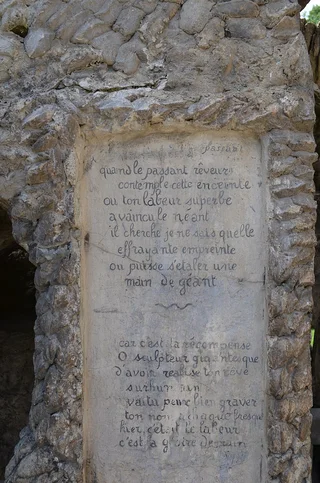 quand le passant rêveur
contemple cette enceinte
ou ton labeur superbe
a vaincu le néant
il cherche je ne sais quelle
effrayante empreinte
ou puisse s'etaler une
main de géant
car c'est la récompense
O sculpteur gigantesque
d'avoir realisé ton rêve
surhumain
va tu peux bien graver
ton nom
hier, cet le labeur
c'est la gloire demain